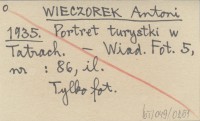 o
WIECZOREK Antoni
1935. Portret turystki w
Tatrach. – Wiad. Fot. 5,
nr : 86, il.
Tylko fot.